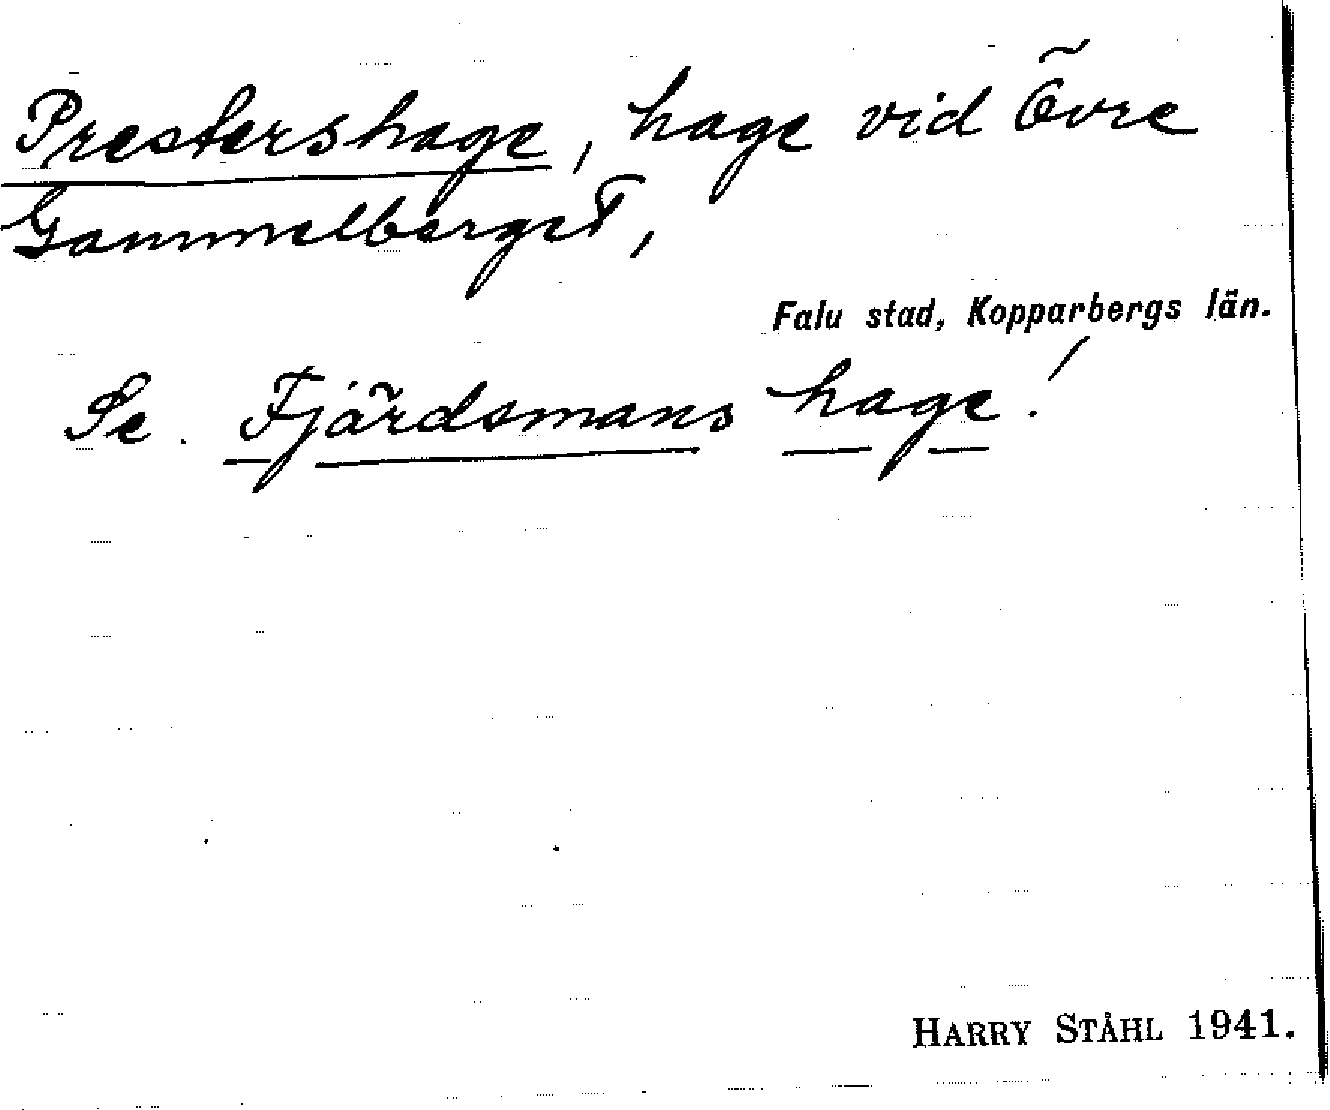 Prestershage, hage vid Övre
Gammelberget,
Falu stad, Kopparbergs län.
Se. Fjärdsmans hage!
HARRY STÅHL 1941.